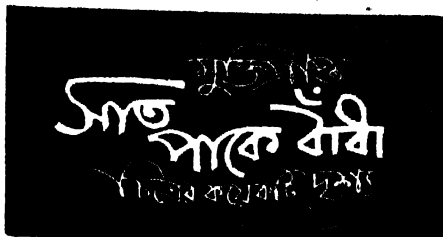 সাত
পাকে বাঁধা
চিত্রের কয়েকটি দৃশ্য